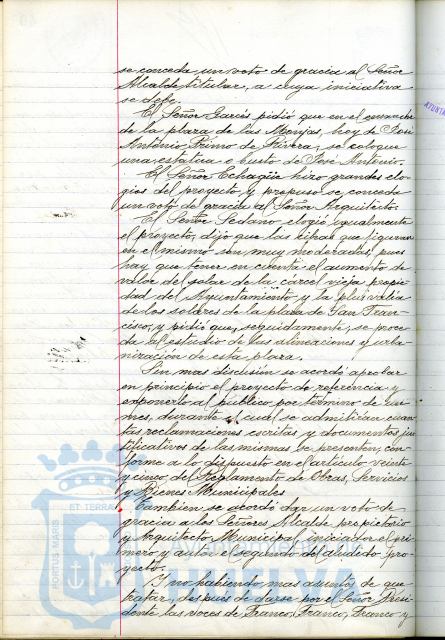 se conceda un voto de gracia al Señor
Alcalde titular, a cuya iniciativa
se debe.
El Señor Garcés pidió que en el ensanche
de la plaza de las Monjas, hoy de José
Antonio Primo de Rivera, se coloque
una estatua o busto de José Antonio.
El Señor Echagüe hizo grandes elo-
gios del proyecto y propuso se conceda
un voto de gracia al Señor Arquitecto.
El Señor Sedano elogió igualmente
el proyecto, dijo que las cifras que figuran
en el mismo son muy moderadas, pues
hay que tener en cuenta el aumento de
valor del solar de la carcel vieja propie-
dad del Ayuntamiento y la plus valia
de los solares de la plaza de San Fran-
cisco, y pidió que, seguidamente, se proce-
da al estudio de las alineaciones y urba-
nización de esta plaza.
Sin mas discusión se acordó aprobar
en principio el proyecto de referencia y
exponerlo al público por término de un
mes, durante el cual se admitirán cuan-
tas reclamaciones escritas y documentos jus-
tificativos de las mismas se presenten, con-
forme a lo dispuesto en el artículo veinte
y cinco del Reglamento de Obras, Servicios
y Bienes Municipales
Tambien se acordó dar un voto de
gracia a los Señores Alcalde propietario
y Arquitecto Municipal, iniciador el pri-
mero y autor el segundo del aludido pro-
yecto.
Y no habiendo mas asuntos de que
tratar, después de darse por el Señor Presi-
dente las voces de Franco, Franco, Franco y
AYUNTA
PORTUS MARIS
ET TERRAE